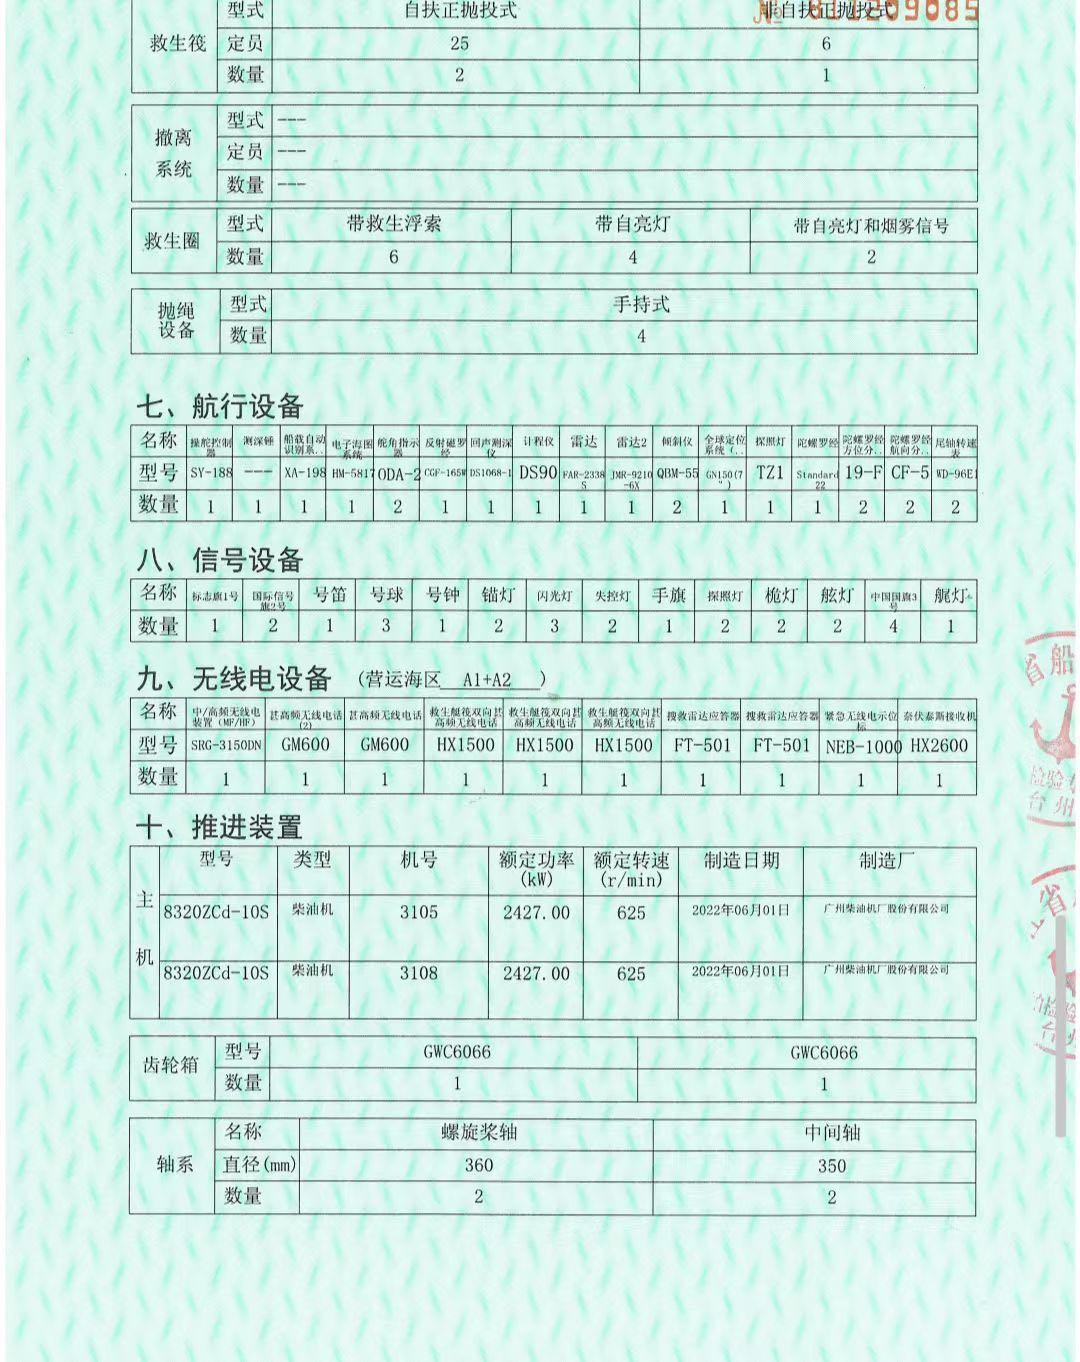 救生筏 型式 自扶正抛投式 非自扶正抛投式
定员 25 6
数量 2 1
撤离系统 型式 ---
定员 ---
数量 ---
救生圈 型式 带救生浮索 带自亮灯 带自亮灯和烟雾信号
数量 6 4 2
抛绳设备 型式 手持式
数量 4
七、航行设备
名称 操舵控制器 测深锤 船载自动识别系.. 电子海图系统 舵角指示器 反射磁罗经 回声测深仪 计程仪 雷达 雷达2 倾斜仪 全球定位系统（.. 探照灯 陀螺罗经 陀螺罗经方位分.. 陀螺罗经航向分.. 尾轴转速表
型号 SY-188 --- XA-198 HM-5817 ODA-2 CGF-165W DS1068-1 DS90 FAR-2338S JMR-9210-6X QBM-55 GN150(7") TZ1 Standard 22 19-F CF-5 WD-96E1
数量 1 1 1 1 2 1 1 1 1 1 2 1 1 1 2 2 2
八、信号设备
名称 标志旗1号 国际信号旗2号 号笛 号球 号钟 锚灯 闪光灯 失控灯 手旗 探照灯 桅灯 舷灯 中国国旗3号 艉灯
数量 1 2 1 3 1 2 3 2 1 2 2 2 4 1
九、无线电设备 （营运海区 A1+A2 ）
名称 中/高频无线电装置（MF/HF） 甚高频无线电话(2) 甚高频无线电话 救生艇筏双向甚高频无线电话 救生艇筏双向甚高频无线电话 救生艇筏双向甚高频无线电话 搜救雷达应答器 搜救雷达应答器 紧急无线电示位标 奈伏泰斯接收机
型号 SRG-3150DN GM600 GM600 HX1500 HX1500 HX1500 FT-501 FT-501 NEB-1000 HX2600
数量 1 1 1 1 1 1 1 1 1 1
十、推进装置
主机 型号 类型 机号 额定功率(kW) 额定转速(r/min) 制造日期 制造厂
8320ZCd-10S 柴油机 3105 2427.00 625 2022年06月01日 广州柴油机厂股份有限公司
8320ZCd-10S 柴油机 3108 2427.00 625 2022年06月01日 广州柴油机厂股份有限公司
齿轮箱 型号 GWC6066 GWC6066
数量 1 1
轴系 名称 螺旋桨轴 中间轴
直径(mm) 360 350
数量 2 2
省船
检验
台州